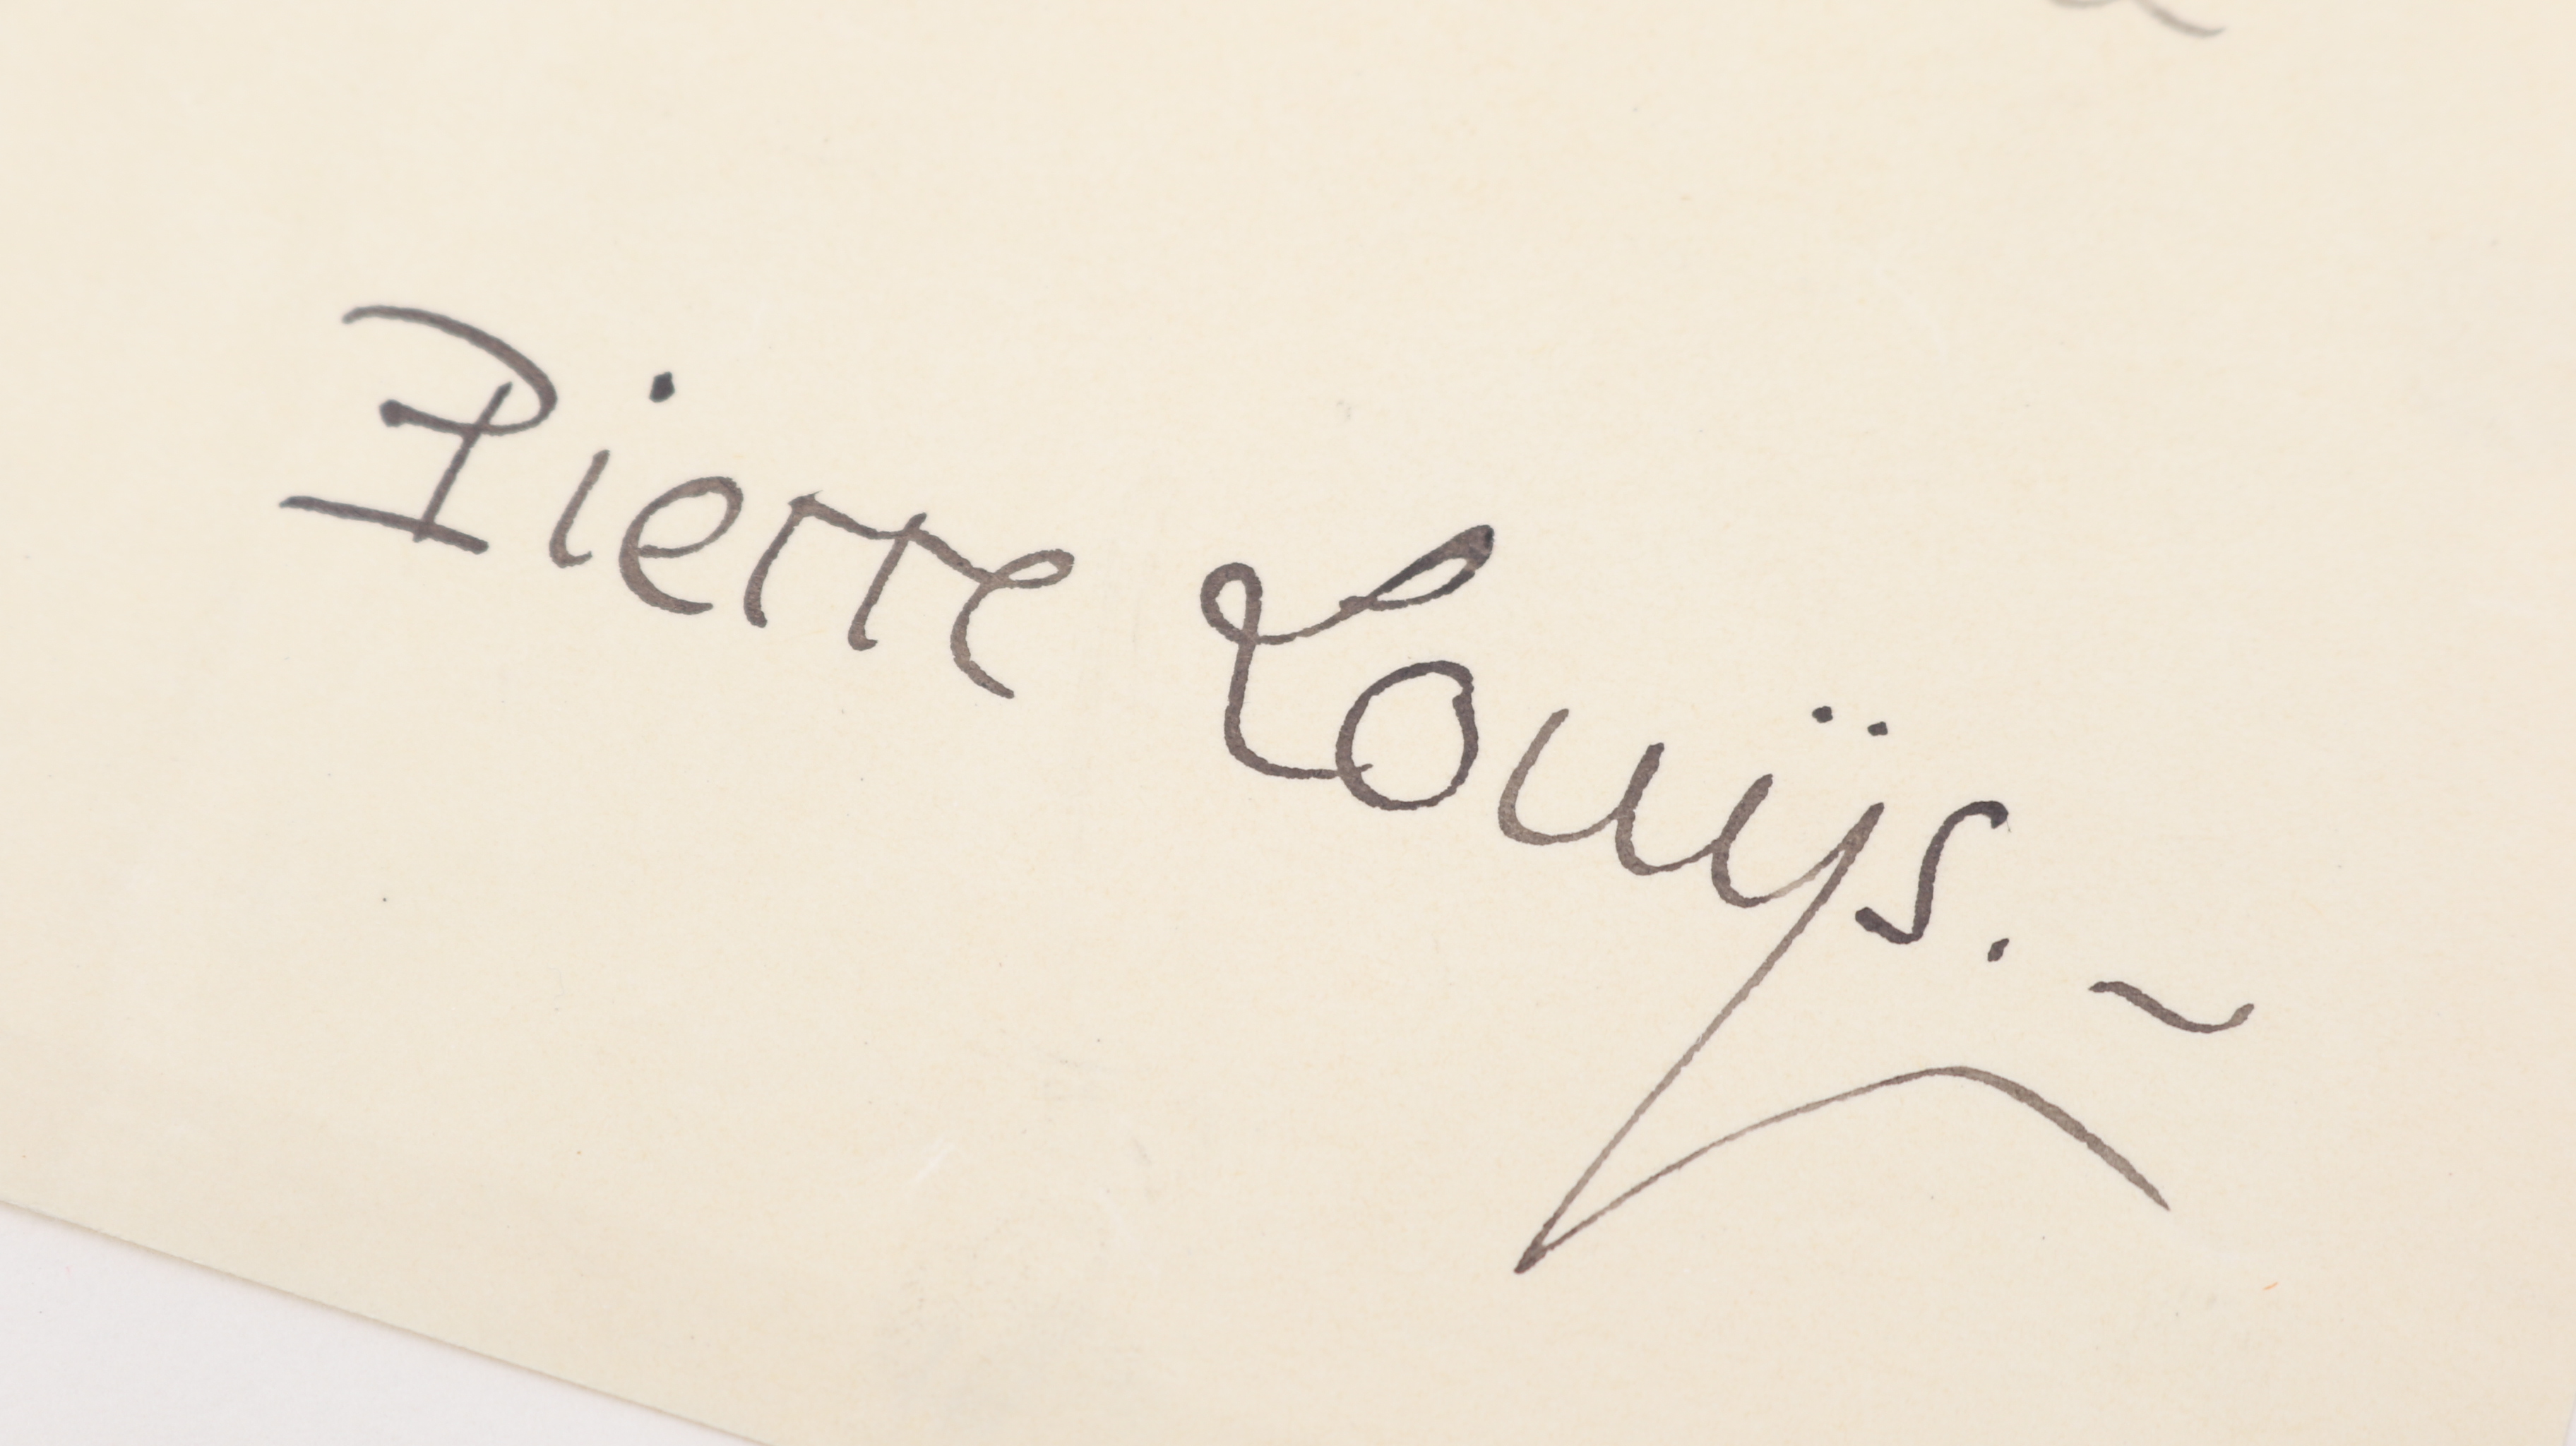 Pierre Louÿs. ~